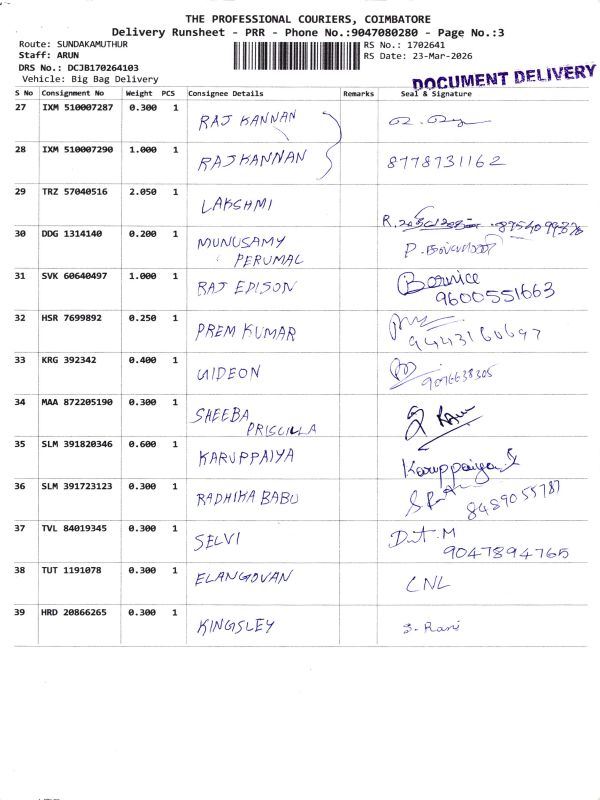 THE PROFESSIONAL COURIERS, COIMBATORE
Delivery Runsheet - PRR - Phone No.:9047080280 - Page No.:3
Route: SUNDAKAMUTHUR
RS No.: 1702641
Staff: ARUN
RS Date: 23-Mar-2026
DRS No.: DCJB170264103
Vehicle: Big Bag Delivery
DOCUMENT DELIVERY
S No Consignment No Weight PCS Consignee Details Remarks Seal & Signature
27 IXM 510007287 0.300 1 RAJ KANNAN
28 IXM 510007290 1.000 1 RAJKANNAN 8778731162
29 TRZ 57040516 2.050 1 LAKSHMI
30 DDG 1314140 0.200 1 MUNUSAMY
PERUMAL
31 SVK 60640497 1.000 1 RAJ EDISON Bernice
9600551663
32 HSR 7699892 0.250 1 PREM KUMAR 9443160697
33 KRG 392342 0.400 1 GIDEON 9076638305
34 MAA 872205190 0.300 1 SHEEBA
PRISCILLA
35 SLM 391820346 0.600 1 KARUPPAIYA Karuppaiya.S
36 SLM 391723123 0.300 1 RADHIKA BABU 8489055787
37 TVL 84019345 0.300 1 SELVI
9047894765
38 TUT 1191078 0.300 1 ELANGOVAN CNL
39 HRD 20866265 0.300 1 KINGSLEY S. Rani